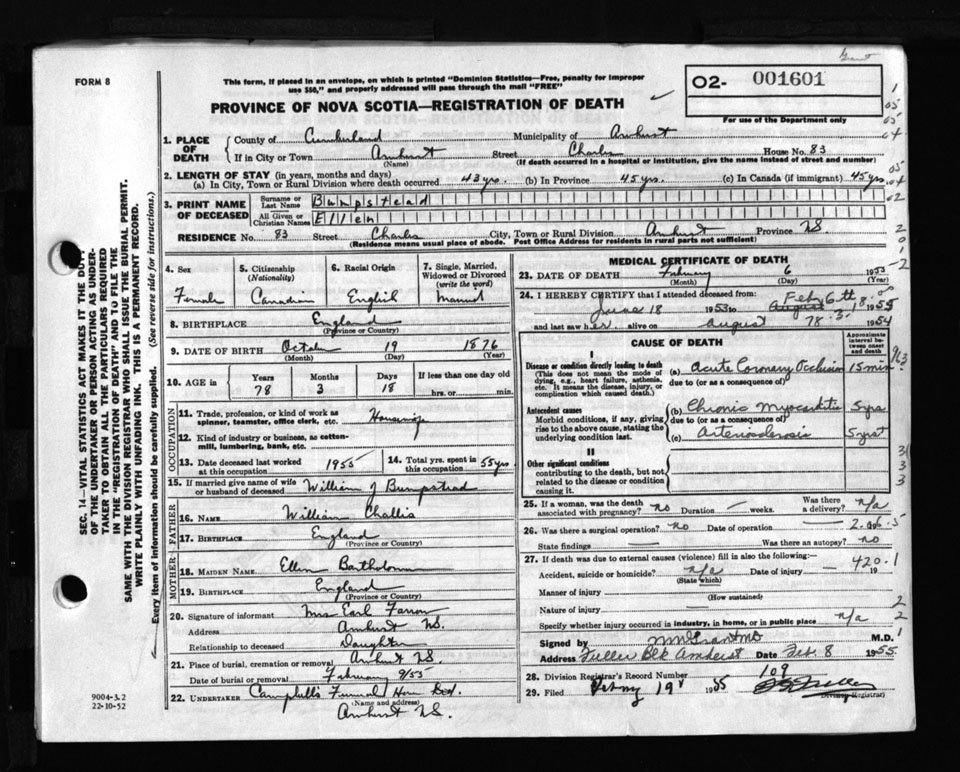 FORM 8
This form, if placed in an envelope, on which is printed "Dominion Statistics—Free, penalty for improper
use $50," and properly addressed will pass through the mail "FREE"
O2- 001601
For use of the Department only
PROVINCE OF NOVA SCOTIA—REGISTRATION OF DEATH
1. PLACE OF DEATH
County of Cumberland Municipality of Amherst
If in City or Town Amherst Street Charles House No. 83
(Name) (If death occurred in a hospital or institution, give the name instead of street and number)
2. LENGTH OF STAY (in years, months and days)
(a) In City, Town or Rural Division where death occurred 43 yrs. (b) In Province 45 yrs. (c) In Canada (if immigrant) 45 yrs.
3. PRINT NAME OF DECEASED
Surname or Last Name Bumpstead
All Given or Christian Names Ellen
RESIDENCE No. 83 Street Charles City, Town or Rural Division Amherst Province NS
(Residence means usual place of abode. Post Office Address for residents in rural parts not sufficient)
4. Sex Female
5. Citizenship (Nationality) Canadian
6. Racial Origin English
7. Single, Married, Widowed or Divorced (write the word) Married
8. BIRTHPLACE England
(Province or Country)
9. DATE OF BIRTH October 19 1876
(Month) (Day) (Year)
10. AGE in Years 78 Months 3 Days 18 If less than one day old hrs. or min.
OCCUPATION
11. Trade, profession, or kind of work as spinner, teamster, office clerk, etc. Housewife
12. Kind of industry or business, as cotton-mill, lumbering, bank, etc.
13. Date deceased last worked at this occupation 1955
14. Total yrs. spent in this occupation 55 yrs.
15. If married give name of wife or husband of deceased William J Bumpstead
FATHER
16. NAME William Challis
17. BIRTHPLACE England
(Province or Country)
MOTHER
18. MAIDEN NAME Ellen
19. BIRTHPLACE England
(Province or Country)
20. Signature of informant Mrs Earl
Address Amherst NS.
Relationship to deceased Daughter
21. Place of burial, cremation or removal Amherst NS.
Date of burial or removal February 9/55
22. UNDERTAKER Campbells Funeral Home Ltd.
(Name and address)
Amherst NS.
MEDICAL CERTIFICATE OF DEATH
23. DATE OF DEATH February 6 1955
(Month) (Day) (Year)
24. I HEREBY CERTIFY that I attended deceased from:
June 18 1953 to Feb 6th 1955
and last saw her alive on August 1954
CAUSE OF DEATH
Approximate interval between onset and death
I
Disease or condition directly leading to death
(This does not mean the mode of dying, e.g., heart failure, asthenia, etc. It means the disease, injury, or complication which caused death.)
(a) Acute Coronary Occlusion 15 min
due to (or as a consequence of)
Antecedent causes
Morbid conditions, if any, giving rise to the above cause, stating the underlying condition last.
(b) Chronic myocarditis 5 yrs
due to (or as a consequence of)
(c) Arteriosclerosis 5 yrs
II
Other significant conditions
contributing to the death, but not related to the disease or condition causing it.
25. If a woman, was the death associated with pregnancy? no Duration — weeks. Was there a delivery? n/a
26. Was there a surgical operation? no Date of operation —
State findings — Was there an autopsy? no
27. If death was due to external causes (violence) fill in also the following:—
Accident, suicide or homicide? n/a Date of injury — 19
(State which)
420.1
Manner of injury
(How sustained)
Nature of injury
Specify whether injury occurred in industry, in home, or in public place n/a
Signed by M.D.
Address Fuller Blk Amherst Date Feb. 8 1955
28. Division Registrar's Record Number 109
29. Filed 1955
(Division Registrar)
SEC. 14—VITAL STATISTICS ACT MAKES IT THE DUTY
OF THE UNDERTAKER OR PERSON ACTING AS UNDER-
TAKER TO OBTAIN ALL THE PARTICULARS REQUIRED
IN THE "REGISTRATION OF DEATH" AND TO FILE THE
SAME WITH THE DIVISION REGISTRAR WHO SHALL ISSUE THE BURIAL PERMIT.
WRITE PLAINLY WITH UNFADING INK. THIS IS A PERMANENT RECORD.
Every item of information should be carefully supplied. (See reverse side for instructions.)
9004-3.2
22-10-52